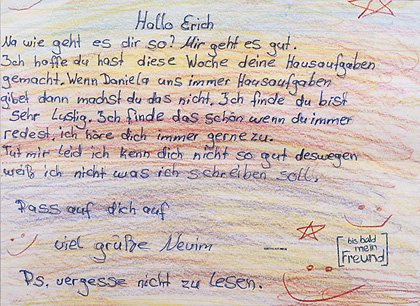 Hallo Erich
Na wie geht es dir so? Mir geht es gut.
Ich hoffe du hast diese Woche deine Hausaufgaben
gemacht. Wenn Daniela uns immer Hausaufgaben
gibet dann machst du das nicht. Ich finde du bist
sehr Lustig. Ich finde das schön wenn du immer
redest, ich höre dich immer gerne zu.
Tut mir leid ich kenn dich nicht so gut deswegen
weiß ich nicht was ich schreiben soll.
Pass auf dich auf
viel grüße Nevim
bis bald
mein
Freund
Ps. vergesse nicht zu Lesen.